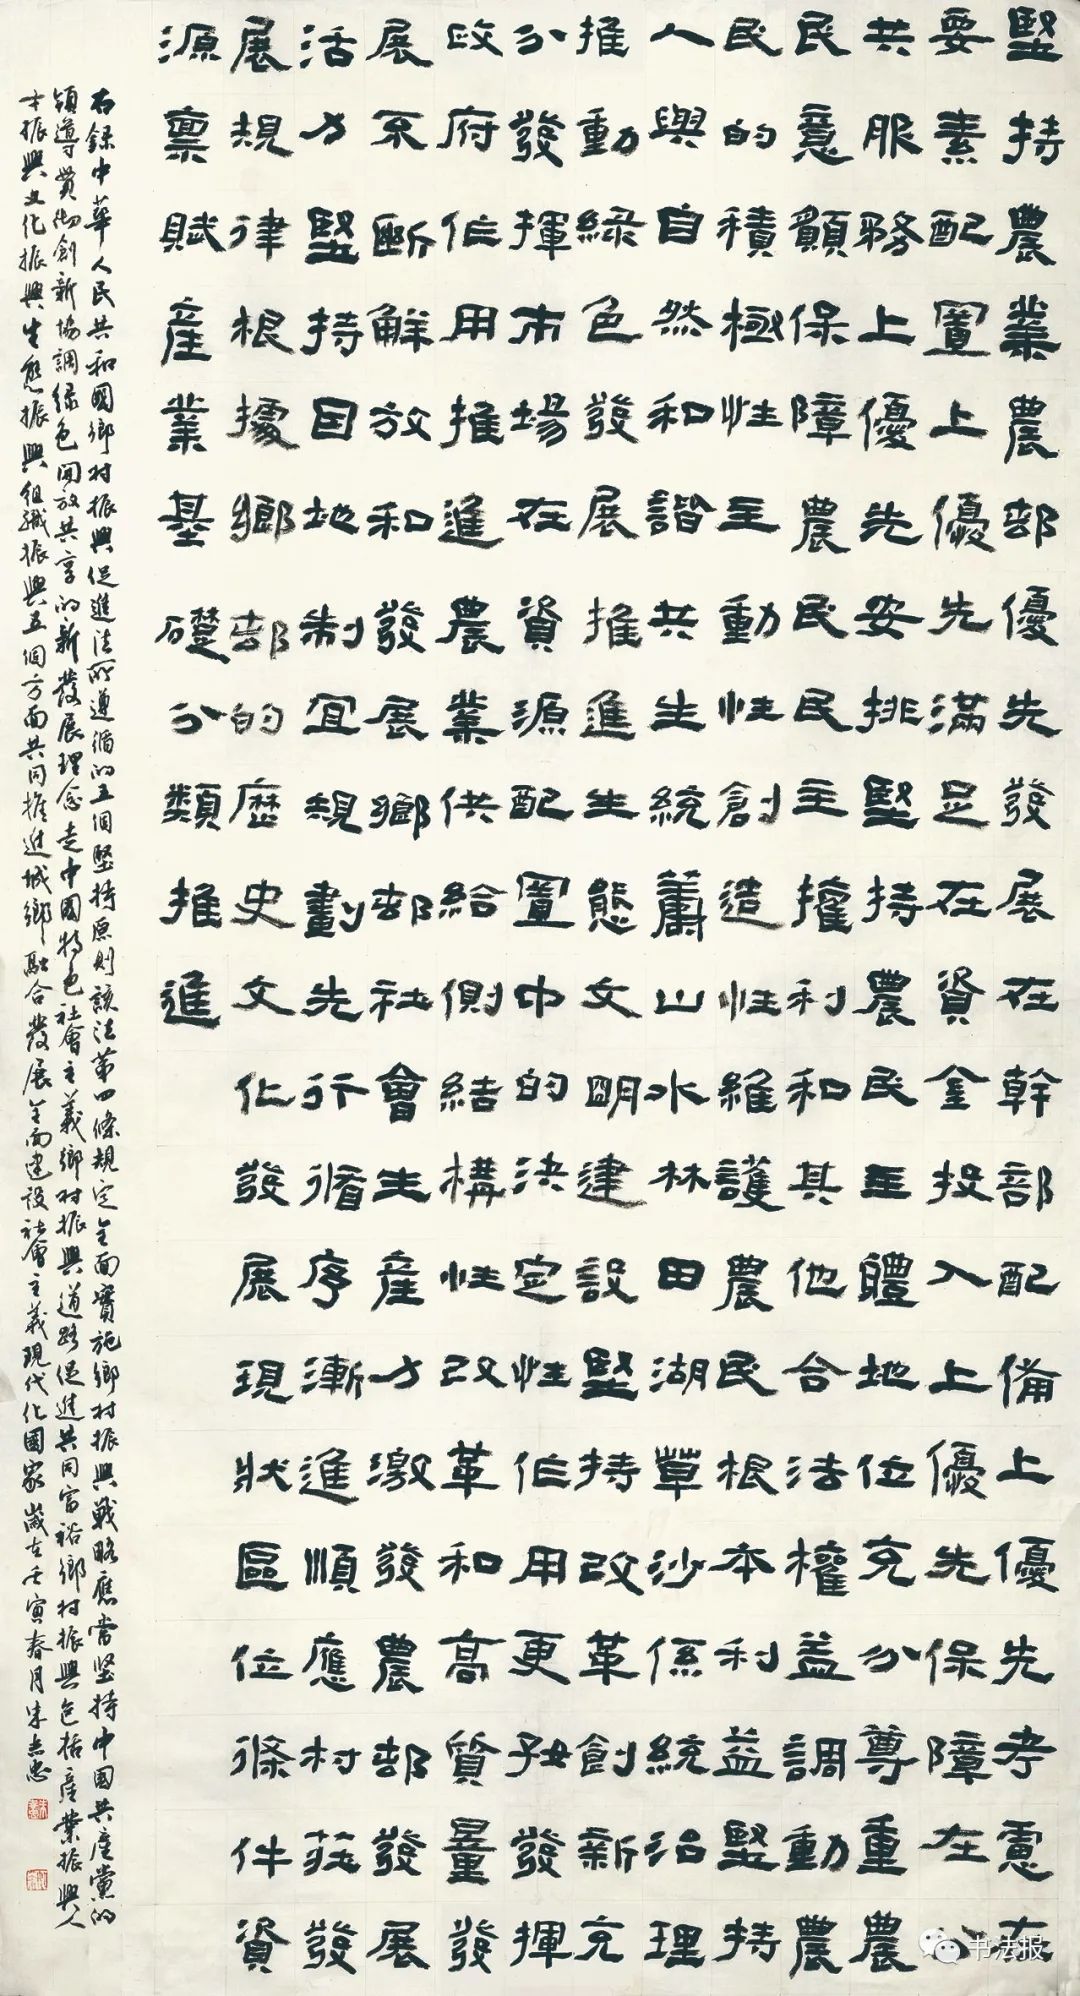 堅持農業農邨優先發展在幹部配備上優先考慮在
要素配置上優先滿足在資金投入上優先保障在公
共服務上優先安排堅持農民主體地位充分尊重農
民意願保障農民民主權利和其他合法權益調動農
民的積極性主動性創造性維護農民根本利益堅持
人與自然和諧共生統籌山水林田湖草沙係統治理
推動綠色發展推進生態文明建設堅持改革創新充
分發揮市場在資源配置中的決定性作用更好發揮
政府作用推進農業供給側結構性改革和高質量發
展不斷解放和發展鄉邨社會生產力激發農邨發展
活力堅持因地制宜規劃先行循序漸進順應村莊發
展規律根據鄉邨的歷史文化發展現狀區位條件資
源稟賦產業基礎分類推進
右錄中華人民共和國鄉村振興促進法所遵循的五個堅持原則該法第四條規定全面實施鄉村振興戰略應當堅持中國共產黨的
領導貫徹創新協調綠色開放共享的新發展理念走中國特色社會主義鄉村振興道路促進共同富裕鄉村振興包括產業振興人
才振興文化振興生態振興組織振興五個方面共同推進城鄉融合發展全面建設社會主義現代化國家歲在壬寅春月朱志
书法报